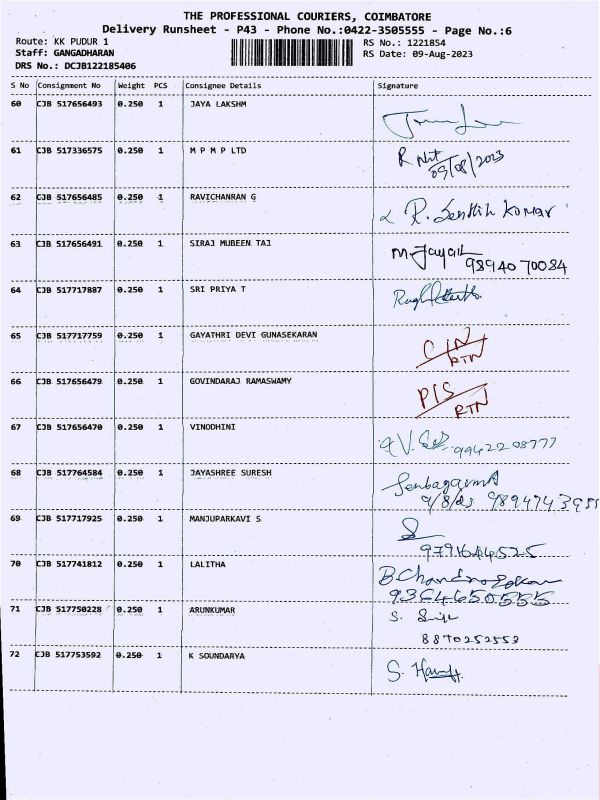 THE PROFESSIONAL COURIERS, COIMBATORE
Delivery Runsheet - P43 - Phone No.:0422-3505555 - Page No.:6
Route: KK PUDUR 1
RS No.: 1221854
Staff: GANGADHARAN
RS Date: 09-Aug-2023
DRS No.: DCJB122185406
S No Consignment No Weight PCS Consignee Details Signature
60 CJB 517656493 0.250 1 JAYA LAKSHM
61 CJB 517336575 0.250 1 M P M P LTD R.
09/08/2023
62 CJB 517656485 0.250 1 RAVICHANRAN G R. Senthil Kumar
63 CJB 517656491 0.250 1 SIRAJ MUBEEN TAJ
98940 70084
64 CJB 517717887 0.250 1 SRI PRIYA T
65 CJB 517717759 0.250 1 GAYATHRI DEVI GUNASEKARAN
RTN
66 CJB 517656479 0.250 1 GOVINDARAJ RAMASWAMY
RTN
67 CJB 517656470 0.250 1 VINODHINI V. 9942208777
68 CJB 517764584 0.250 1 JAYASHREE SURESH
9/8/23
69 CJB 517717925 0.250 1 MANJUPARKAVI S
70 CJB 517741812 0.250 1 LALITHA
9364650555
71 CJB 517750228 0.250 1 ARUNKUMAR S.
8870252553
72 CJB 517753592 0.250 1 K SOUNDARYA S.